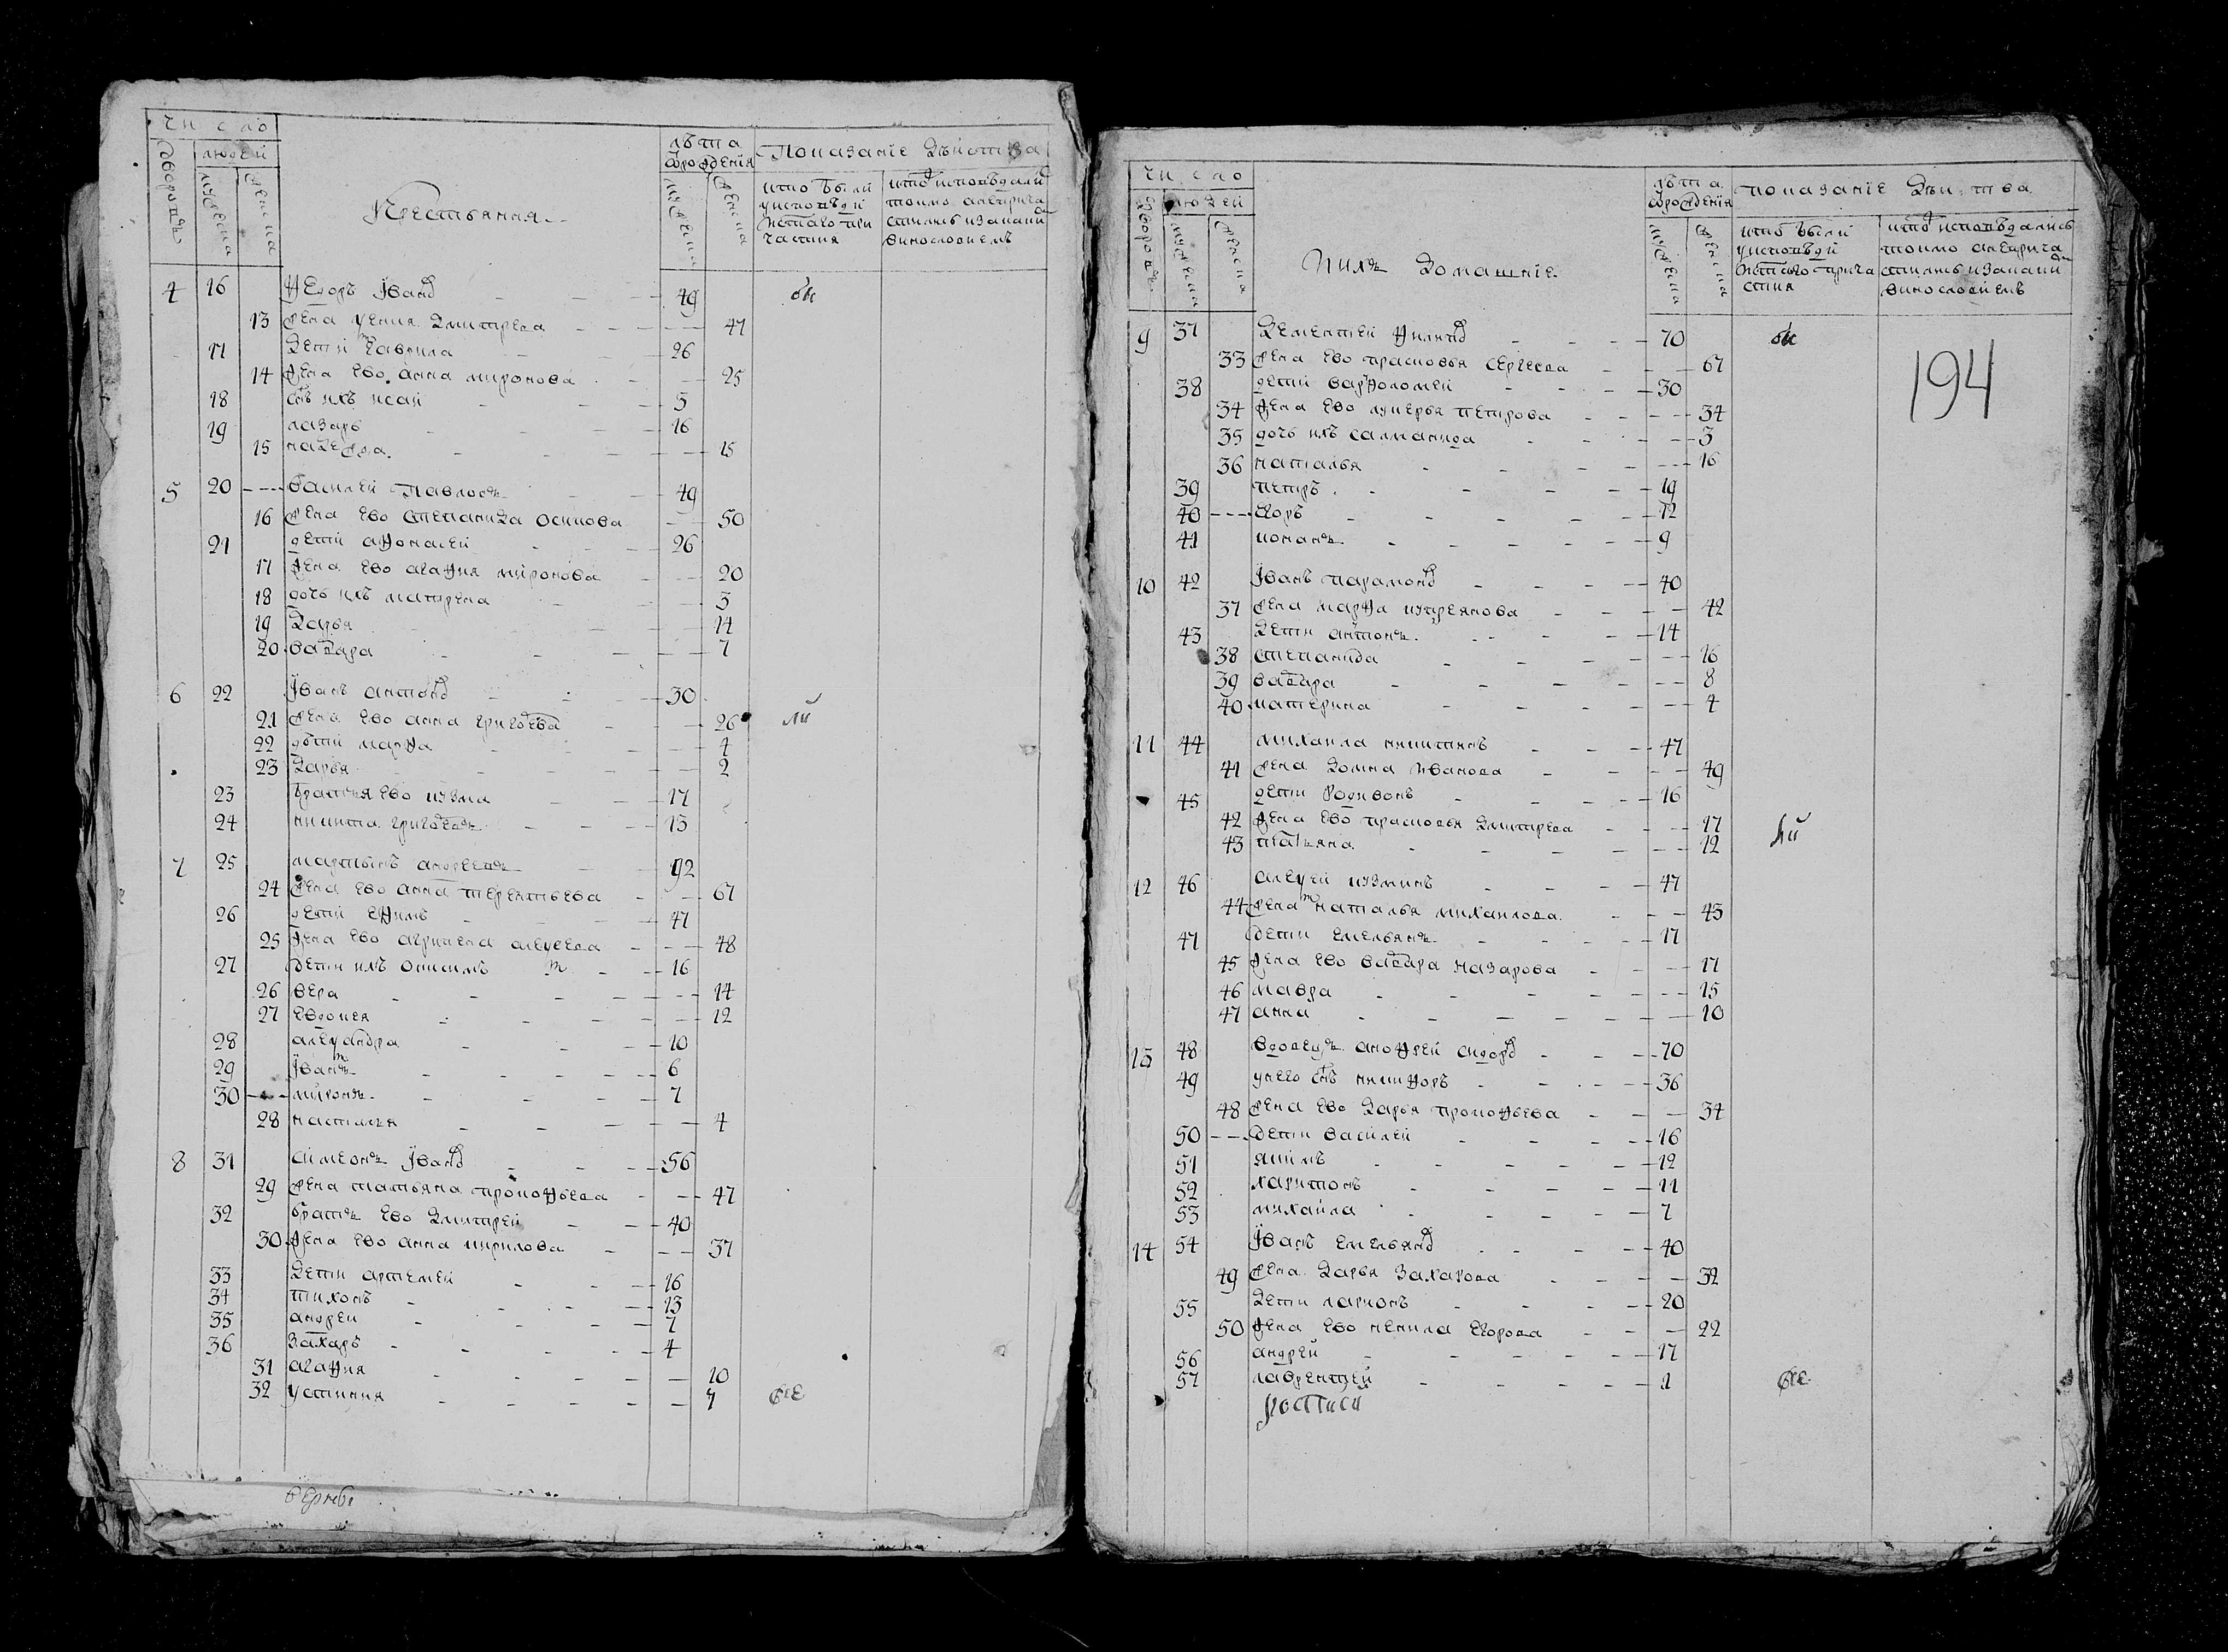 Число
дворовъ
людей
мужеска
женска
Крестьяня
лѣта
от рождения
мужеска
женска
Показаніе дѣйства
кто были
у исповѣди
и святаго при
частия
кто исповѣдались
токмо а не прича
стились и за каким
винословиемъ
4 16 Ѳедоръ Ѵвано 49 бы
13 жена Ѯения Дмитрева 47
17 дети Гаврила 26
14 жена ево анна миронова 25
18 снъ ихъ исаи 5
19 лазарь 16
15 надежда 15
5 20 василеи павловъ 49
16 жена ево степанида осипова 50
21 дети аѳонасеи 26
17 жена ево агаѳия миронова 20
18 дочь ихъ матрена 3
19 Дарья 14
20 вавара 7
6 22 Ѵванъ антоно 30
21 жена ево анна григоева 26 ли
22 дети марѳа 4
23 Дарья 2
23 братья ево кузма 17
24 никита григоевъ 13
7 25 мартынъ андреевъ 92
24 жена ево анна терентьева 67
26 дети еѳимъ 47
25 жена ево агрипена алеѯеева 48
27 дети ихъ онисимъ 16
26 вера 14
27 евдокея 12
28 алеѯандра 10
29 Ѵванъ 6
30 миронъ 7
28 насталья 4
8 31 симеонъ Ѵвано 56
29 жена татьяна прокоѳьева 47
32 братъ ево Дмитреи 40
30 жена ево анна кирилова 37
33 Дети артемеи 16
34 тихонъ 13
35 андреи 7
36 Захаръ 4
31 агаѳия 10
32 устиния 7 все
Число
дворовъ
людей
мужеска
женска
Ихъ домашние
лѣта
от рождения
мужеска
женска
показаніе дѣйства
кто были
у исповѣди
и святаго прича
стия
кто исповѣдались
токмо а не прича
стились и за каким
винословиемъ
194
9 37 Дементеи Ѳилипо 70 бы
33 жена ево прасковья сергеева 67
38 дети варѳоломеи 30
34 жена ево лукерья петрова 34
35 дочь ихъ саламанида 3
36 наталья 16
39 петръ 19
40 егоръ 12
41 кононъ 9
10 42 Ѵванъ парамоно 40
37 жена марѳа купреянова 42
43 Дети антонъ 14
38 степанида 16
39 вавара 8
40 катерина 4
11 44 михаила никитинъ 47
41 жена домна иванова 49
45 дети родивонъ 16
42 жена ево прасковья Дмитрева 17
43 татьяна 12 ли
12 46 алеѯеи кузминъ 47
44 жена наталья михаилова 43
47 дети емельянъ 17
45 жена ево вавара назарова 17
46 мавра 15
47 анна 10
13 48 вдовецъ аноѳреи сидоро 70
49 у него снъ никиѳоръ 36
48 жена ево Дарья прокоѳьева 34
50 дети василеи 16
51 якимъ 12
52 харитонъ 11
53 михаила 7
14 54 Ѵванъ емельяно 40
49 жена Дарья Захарова 32
55 Дети ларионъ 20
50 жена ево ненила егорова 22
56 андреи 17
57 лаврентеи 1 все
росписи